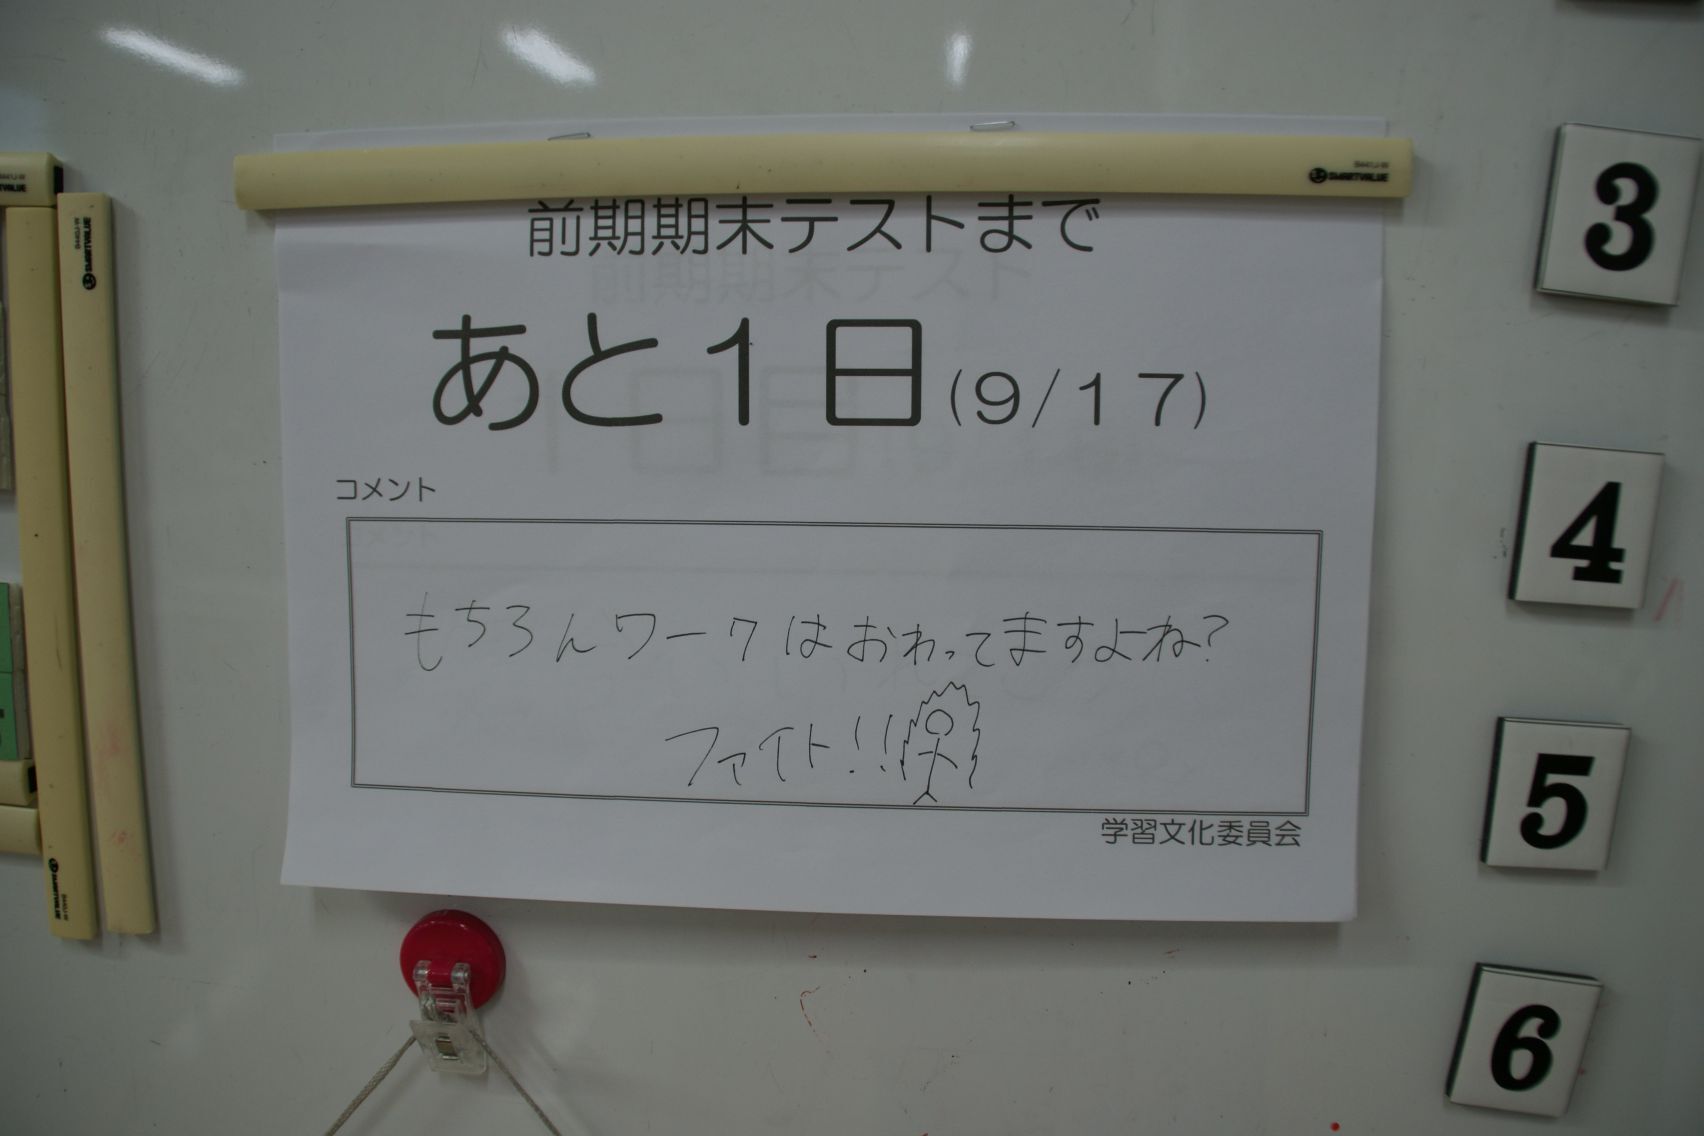 前期期末テストまで
あと1日(9/17)
コメント
もちろんワークはおわってますよね?
ファイト!!
学習文化委員会
SMARTVALUE
SMARTVALUE
SMARTVALUE
3
4
5
6